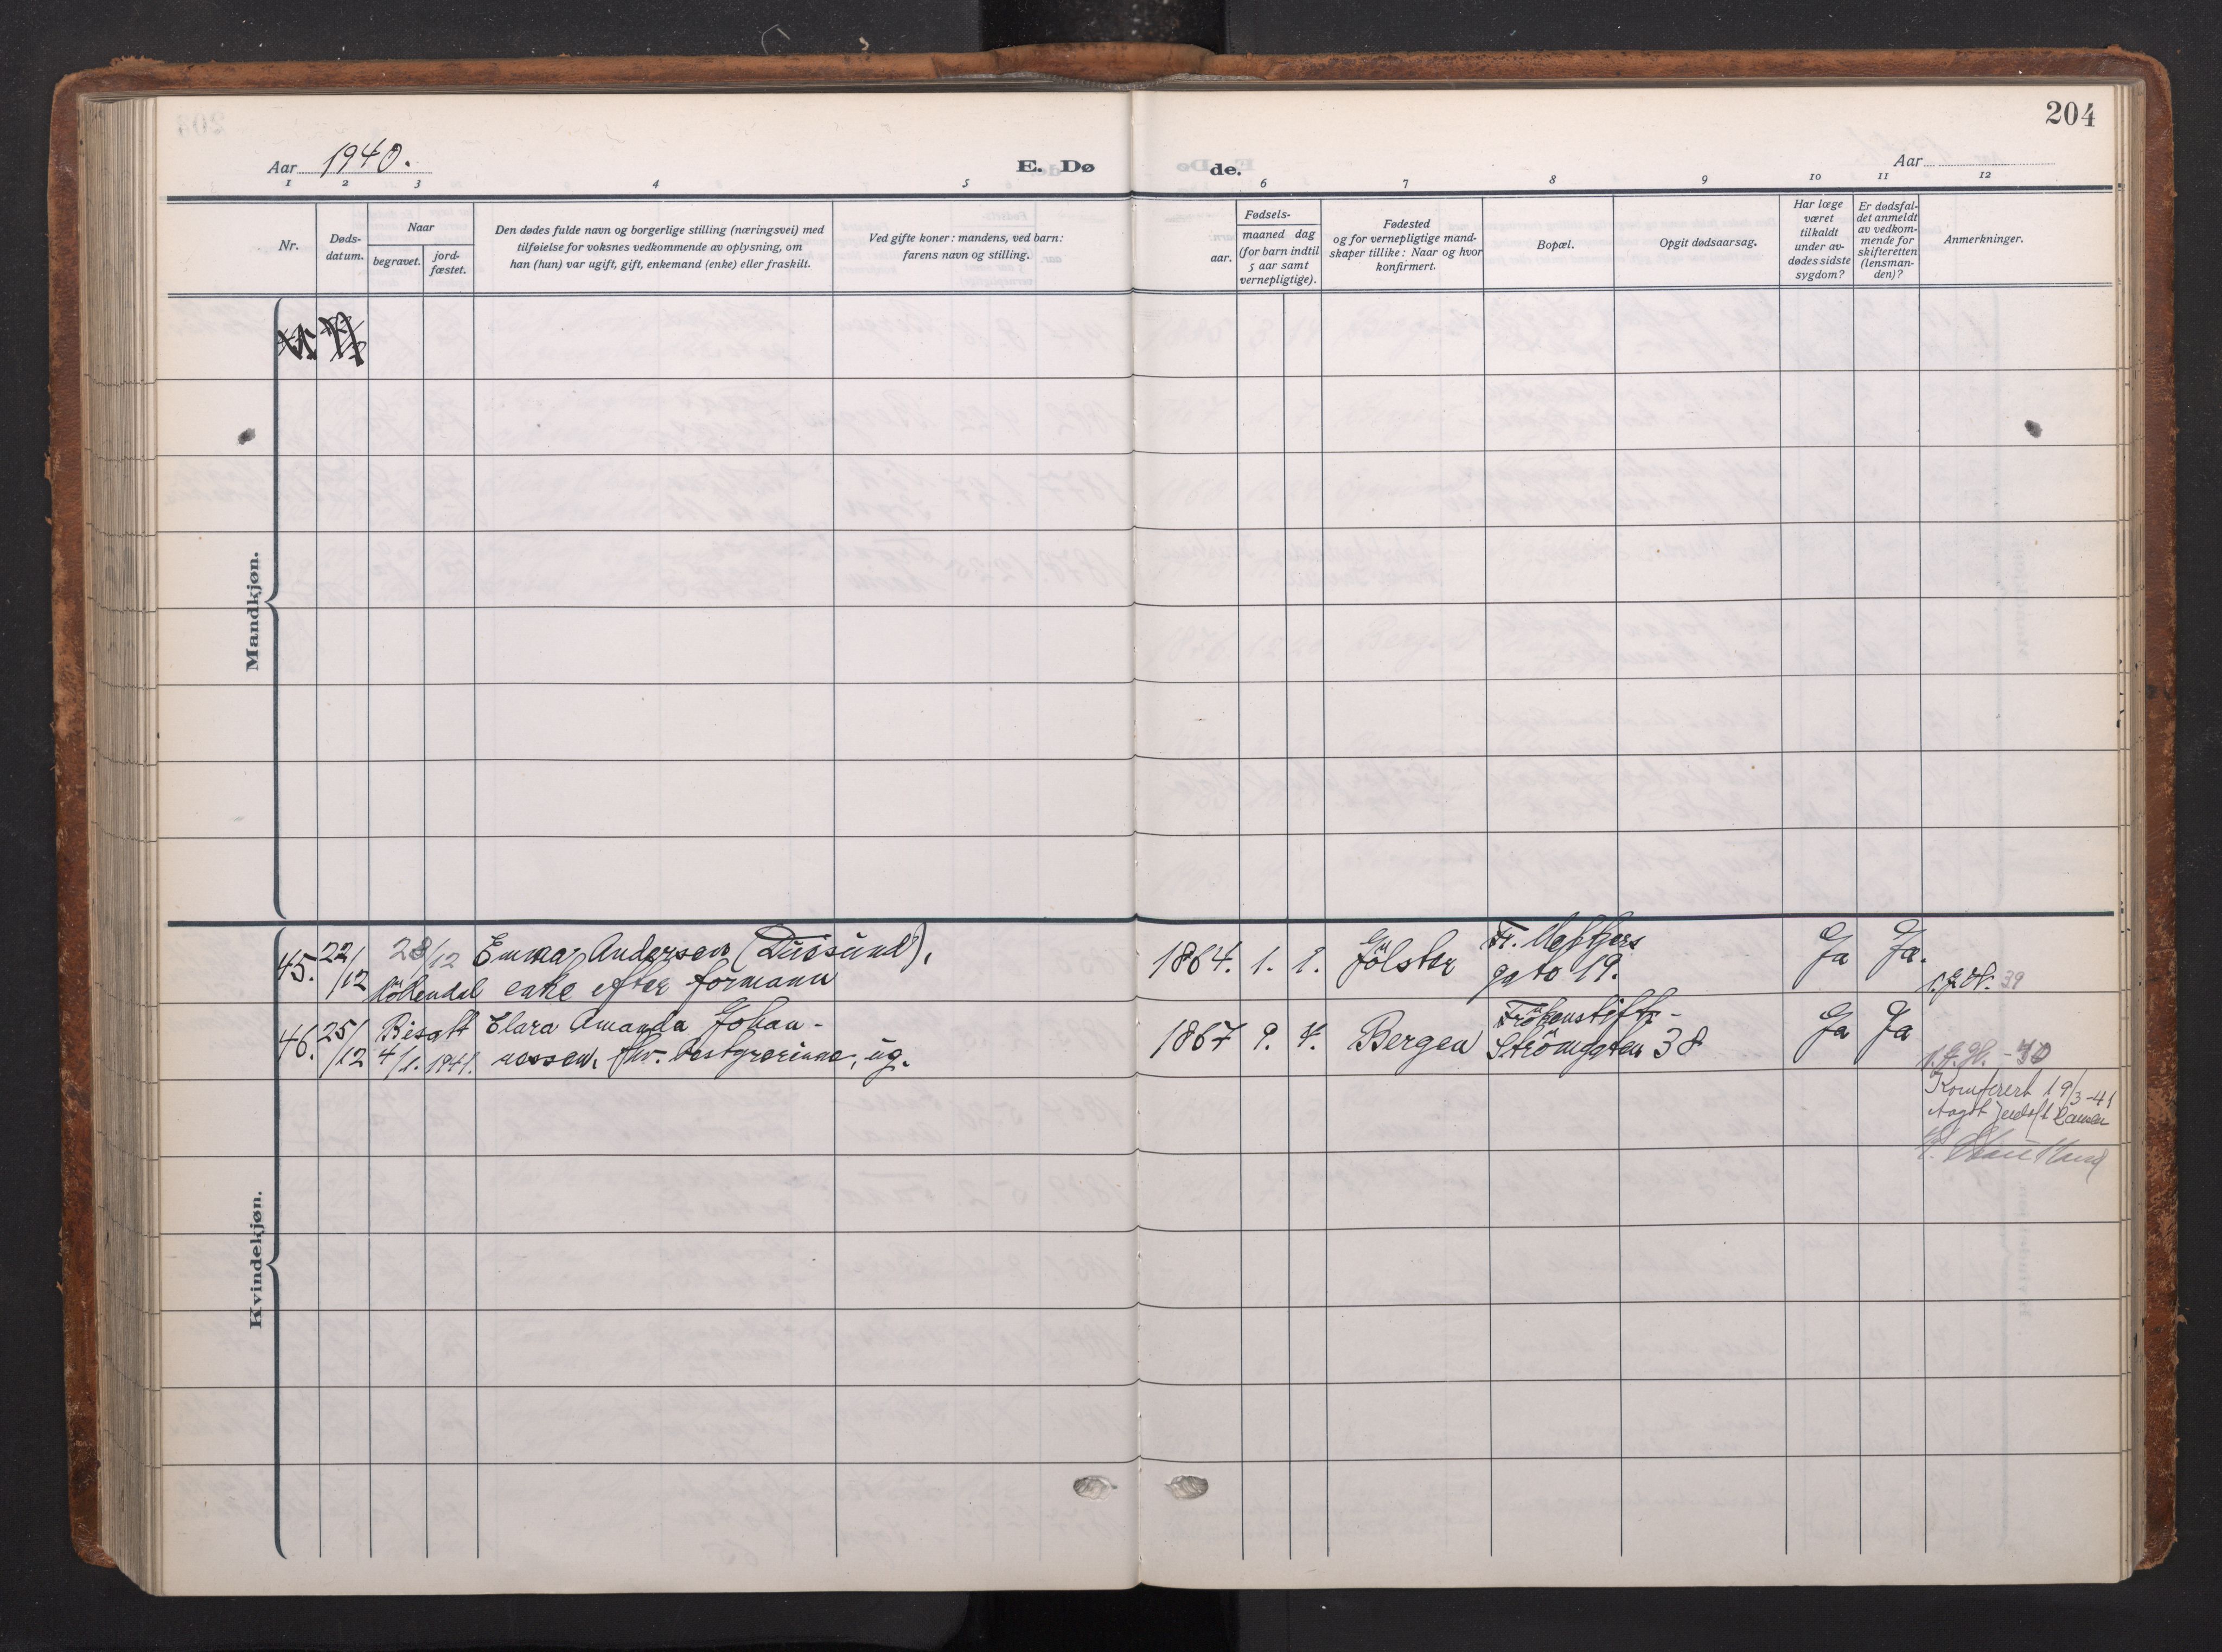 204
Aar 1940.
E. Dø
de.
Aar
1 2 3 4 5 6 7 8 9 10 11 12
Nr.
Døds-
datum.
Naar
begravet.
jord-
fæstet.
Den dødes fulde navn og borgerlige stilling (næringsvei) med
tilføielse for voksnes vedkommende av oplysning, om
han (hun) var ugift, gift, enkemand (enke) eller fraskilt.
Ved gifte koner: mandens, ved barn:
farens navn og stilling.
Fødsels-
aar.
maaned dag
(for barn indtil
5 aar samt
vernepligtige).
Fødested
og for vernepligtige mand-
skaper tillike: Naar og hvor
konfirmert.
Bopæl.
Opgit dødsaarsag.
Har læge
været
tilkaldt
under av-
dødes sidste
sygdom?
Er dødsfal-
det anmeldt
av vedkom-
mende for
skifteretten
(lensman-
den)?
Anmerkninger.
Mandkjøn.
Kvindekjøn.
45. 22/12 28/12 Emma Andersen 1864. 1. 1. Jölster Fr. Meltzers Ja Ja.
Möhlendal enke efter formann gate 19.
39
46. 25/12 Bisatt Clara Amanda Johan- 1867 9. 4. Bergen Frökenstift- Ja Ja
4/1. 1941. nessen, fhv. bestyrerinne, ug. Strömgaten 38
-40
Komferert 19/3-41